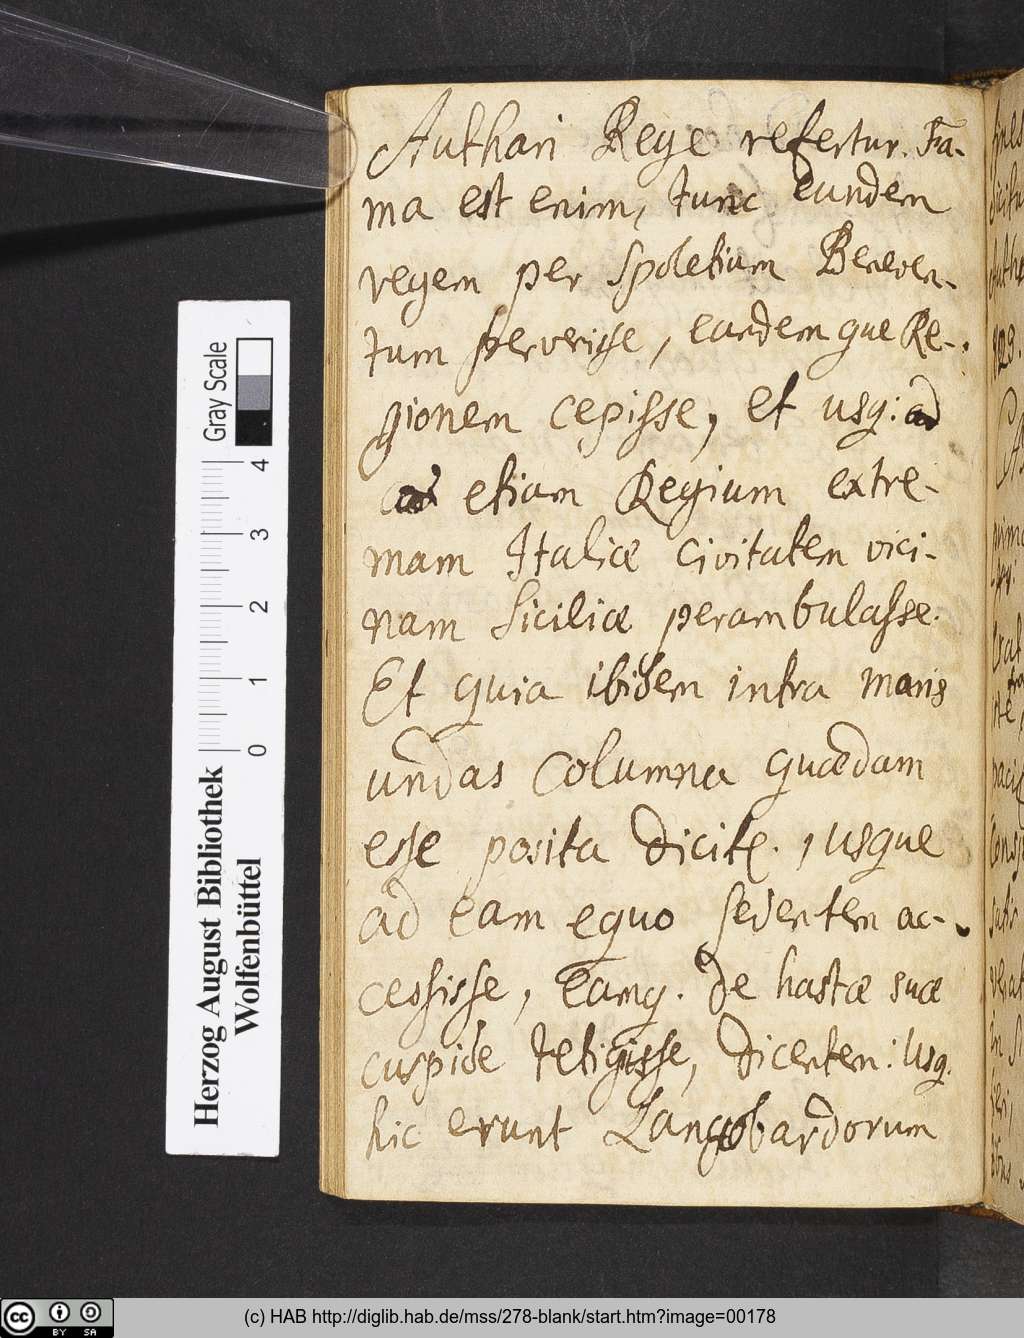 Authari Rege refertur. Fa-
ma est enim, tunc eundem
regem per Spoletium Beneven-
tum pervenisse, eandemque Re-
gionem cepisse, et usq: ad
ad etiam Regium extre-
mam Italiæ civitatem vici-
nam Siciliæ perambulasse.
Et quia ibidem intra maris
undas Columna quædam
esse posita dicitr., usque
ad eam equo sedentem ac-
cessisse, eamq. de hastæ suæ
cuspide tetigisse, dicentem: Usq.
hic erunt Langobardorum
Gray Scale
0 1 2 3 4
Herzog August Bibliothek
Wolfenbüttel
cc BY SA
(c) HAB http://diglib.hab.de/mss/278-blank/start.htm?image=00178